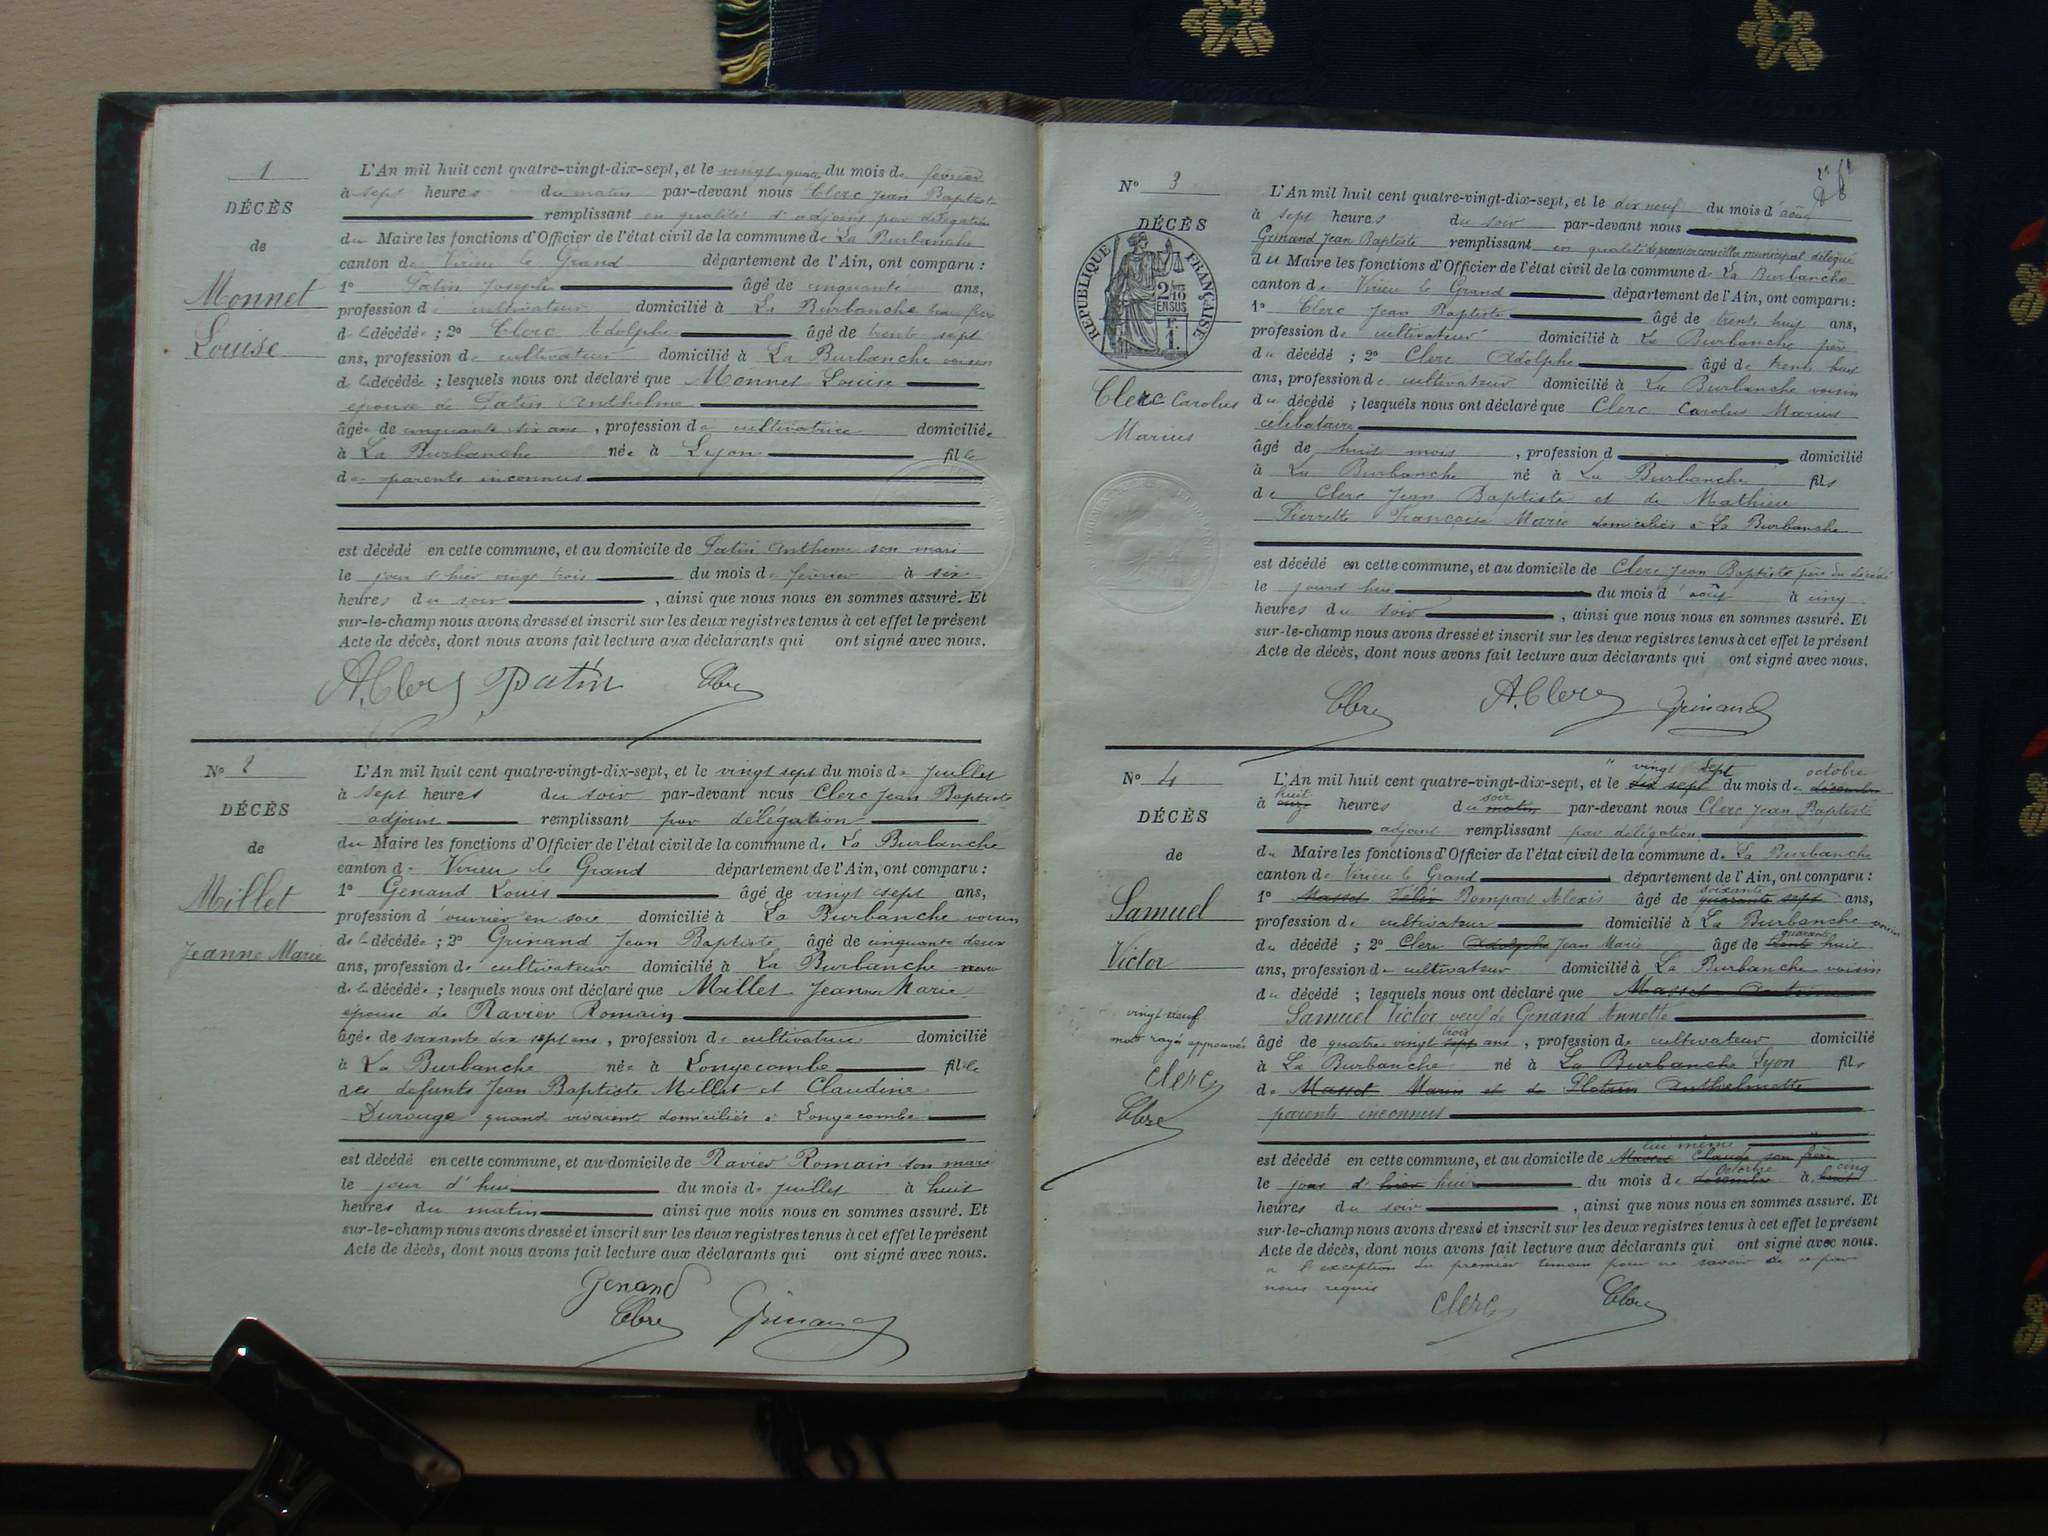 1
DÉCÈS
de
Monnet
Louise
L'An mil huit cent quatre-vingt-dix-sept, et le vingt quatre du mois de février
à sept heures du matin par-devant nous Clerc Jean Baptiste
remplissant en qualité d'adjoint par délégation
du Maire les fonctions d'Officier de l'état civil de la commune de La Burbanche
canton de Virieu le Grand département de l'Ain, ont comparu :
1° Patin Joseph âgé de cinquante ans,
profession de cultivateur domicilié à La Burbanche beau frère
de la décédée ; 2° Clerc Adolphe âgé de trente sept
ans, profession de cultivateur domicilié à La Burbanche voisin
de la décédée ; lesquels nous ont déclaré que Monnet Louise
épouse de Patin Anthelme
âgée de cinquante six ans , profession de cultivatrice domiciliée
à La Burbanche née à Lyon fille
de parents inconnus
est décédé en cette commune, et au domicile de Patin Antheme son mari
le jour d'hier vingt trois du mois de février à six
heures du soir , ainsi que nous nous en sommes assuré. Et
sur-le-champ nous avons dressé et inscrit sur les deux registres tenus à cet effet le présent
Acte de décès, dont nous avons fait lecture aux déclarants qui ont signé avec nous.
A. Clerc Patin Clerc
N° 2
DÉCÈS
de
Millet
Jeanne Marie
L'An mil huit cent quatre-vingt-dix-sept, et le vingt sept du mois de Juillet
à sept heures du soir par-devant nous Clerc Jean Baptiste
adjoint remplissant par délégation
du Maire les fonctions d'Officier de l'état civil de la commune de La Burbanche
canton de Virieu le Grand département de l'Ain, ont comparu :
1° Genand Louis âgé de vingt sept ans,
profession d'ouvrier en soie domicilié à La Burbanche voisin
de la décédée ; 2° Grinand Jean Baptiste âgé de cinquante deux
ans, profession de cultivateur domicilié à La Burbanche neveu
de la décédée ; lesquels nous ont déclaré que Millet Jeanne Marie
épouse de Ravier Romain
âgée de soixante dix sept ans , profession de cultivatrice domicilié
à La Burbanche née à Longecombe fille
des defunts Jean Baptiste Millet et Claudine
Durouge quand vivaient domiciliés à Longecombe
est décédé en cette commune, et au domicile de Ravier Romain son mari
le jour d'hui du mois de juillet à huit
heures du matin ainsi que nous nous en sommes assuré. Et
sur-le-champ nous avons dressé et inscrit sur les deux registres tenus à cet effet le présent
Acte de décès, dont nous avons fait lecture aux déclarants qui ont signé avec nous.
Genand
Clerc Grinand
N° 3
DÉCÈS
RÉPUBLIQUE FRANÇAISE
2/10
EN SUS
F.
1.
Clerc Carolus
Marius
L'An mil huit cent quatre-vingt-dix-sept, et le dix neuf du mois d'août
à sept heures du soir par-devant nous
Grinand Jean Baptiste remplissant en qualité de premier conseiller municipal délégué
du Maire les fonctions d'Officier de l'état civil de la commune de La Burbanche
canton de Virieu le Grand département de l'Ain, ont comparu :
1° Clerc Jean Baptiste âgé de trente huit ans,
profession de cultivateur domicilié à La Burbanche père
du décédé ; 2° Clerc Adolphe âgé de trente huit
ans, profession de cultivateur domicilié à La Burbanche voisin
du décédé ; lesquels nous ont déclaré que Clerc Carolus Marius
célibataire
âgé de huit mois , profession d domicilié
à La Burbanche né à La Burbanche fils
de Clerc Jean Baptiste et de Mathieu
Pierrette Françoise Marie domiciliés à La Burbanche
est décédé en cette commune, et au domicile de Clerc Jean Baptiste père du décédé
le jourd'hui du mois d'août à cinq
heures du soir , ainsi que nous nous en sommes assuré. Et
sur-le-champ nous avons dressé et inscrit sur les deux registres tenus à cet effet le présent
Acte de décès, dont nous avons fait lecture aux déclarants qui ont signé avec nous.
Clerc A. Clerc Grinand
N° 4
DÉCÈS
de
Samuel
Victor
vingt neuf
mots rayés approuvés
Clerc
Clerc
vingt sept octobre
L'An mil huit cent quatre-vingt-dix-sept, et le dix sept du mois de décembre
huit soir
à onze heures du matin par-devant nous Clerc Jean Baptiste
adjoint remplissant par délégation
du Maire les fonctions d'Officier de l'état civil de la commune de La Burbanche
canton de Virieu le Grand département de l'Ain, ont comparu :
soixante
1° Masset Félix Bompart Alexis âgé de quarante sept ans,
profession de cultivateur domicilié à La Burbanche voisin
quarante
du décédé ; 2° Clerc Adolphe Jean Marie âgé de trente huit
ans, profession de cultivateur domicilié à La Burbanche voisin
du décédé ; lesquels nous ont déclaré que Masset
Samuel Victor veuf de Genand Annette
trois
âgé de quatre vingt sept ans , profession de cultivateur domicilié
à La Burbanche né à La Burbanche Lyon fils
de Masset Marin et de Platun Anthelmette
parents inconnus
lui même
est décédé en cette commune, et au domicile de Masset Claude son frère
octobre cinq
le jour d'hier hui du mois de décembre à huit
heures du soir , ainsi que nous nous en sommes assuré. Et
sur-le-champ nous avons dressé et inscrit sur les deux registres tenus à cet effet le présent
Acte de décès, dont nous avons fait lecture aux déclarants qui ont signé avec nous.
a l'exception du premier temoin pour ne savoir de ce par
nous requis
Clerc Clerc